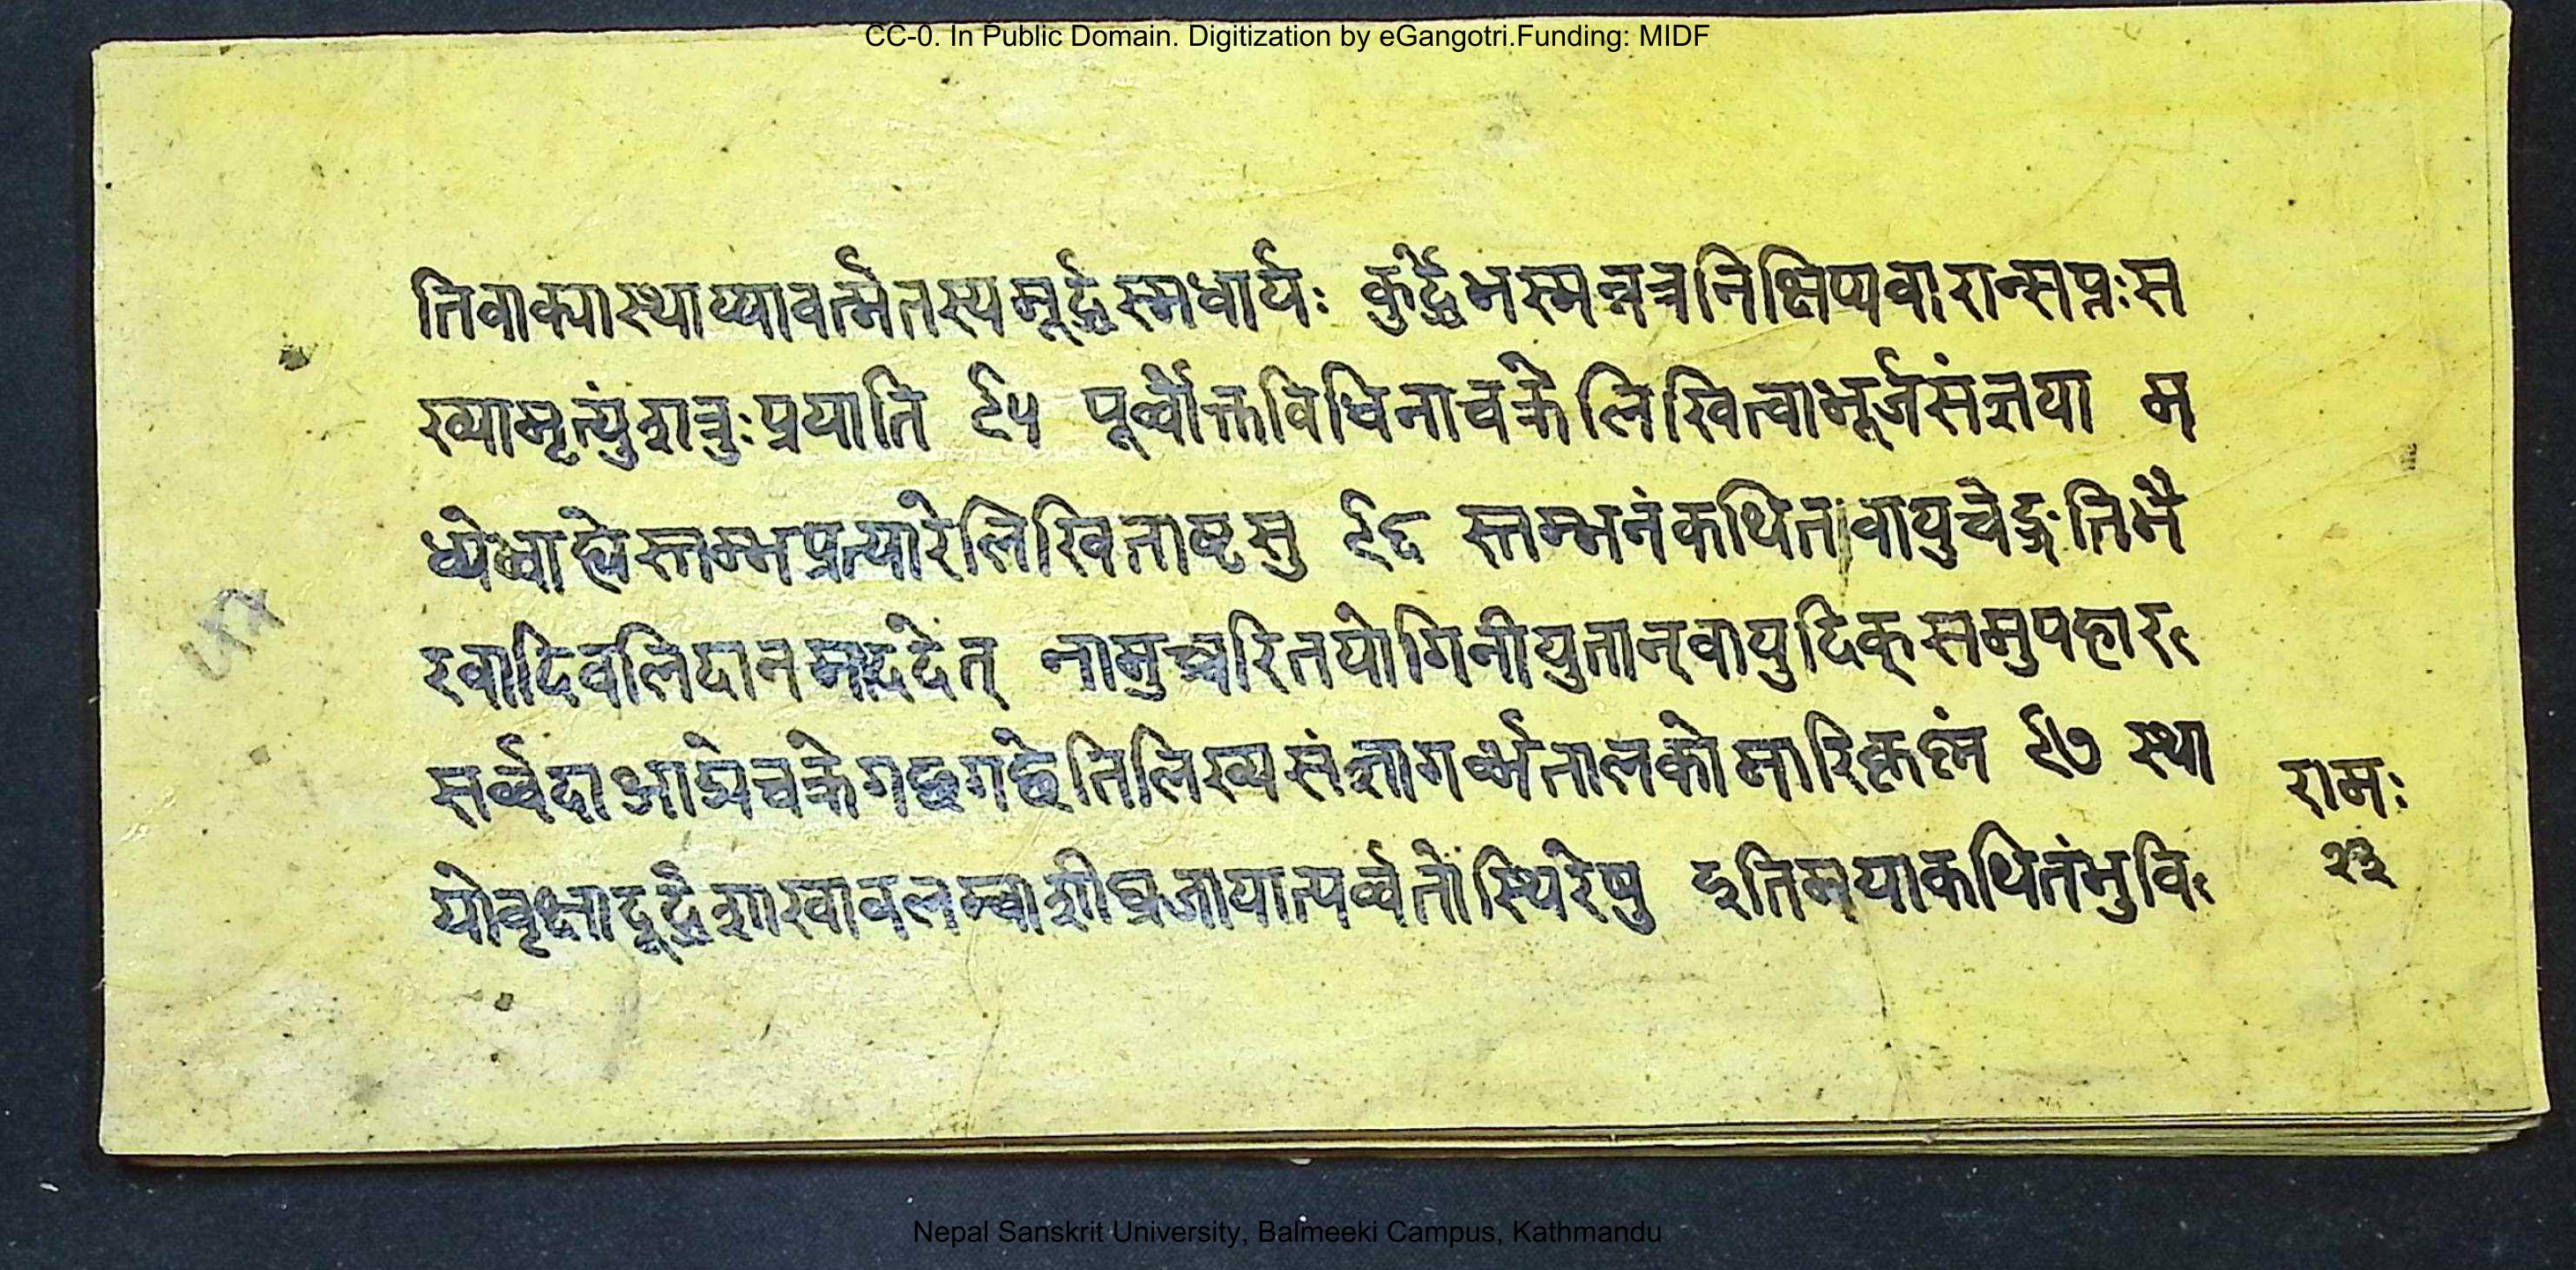 CC-0. In Public Domain. Digitization by eGangotri.Funding: MIDF
तिवाक्यास्थाप्यावर्त्मेतस्यमूर्द्धस्मधार्यः कुर्द्धेभस्मन्नत्रनिक्षिप्यवारान्सप्तःस
ख्यामृत्युंशत्रुःप्रयाति ९५ पूर्व्वोक्तविधिनाचक्रेलिखित्वाभूर्जसंज्ञया म
ध्येबाह्येस्तम्भप्रत्यारेलिखिताष्टसु ९६ स्तम्भनंकथितावायुचेद्गतिभै
रवादिवलिदानमाददेत् नामुच्चरितयोगिनीयुतान्वायुदिक्समुपहार
सर्व्वदाआग्नेचक्रेगछगछेतिलिख्यसंज्ञागर्व्भतालकोमारि ९७ स्था
योवृक्षादूर्द्धेशाखावलम्वाशीघ्रजायात्पर्व्वतोस्थिरेषु इतिमयाकथितंभुवि
रामः
२३
Nepal Sanskrit University, Balmeeki Campus, Kathmandu